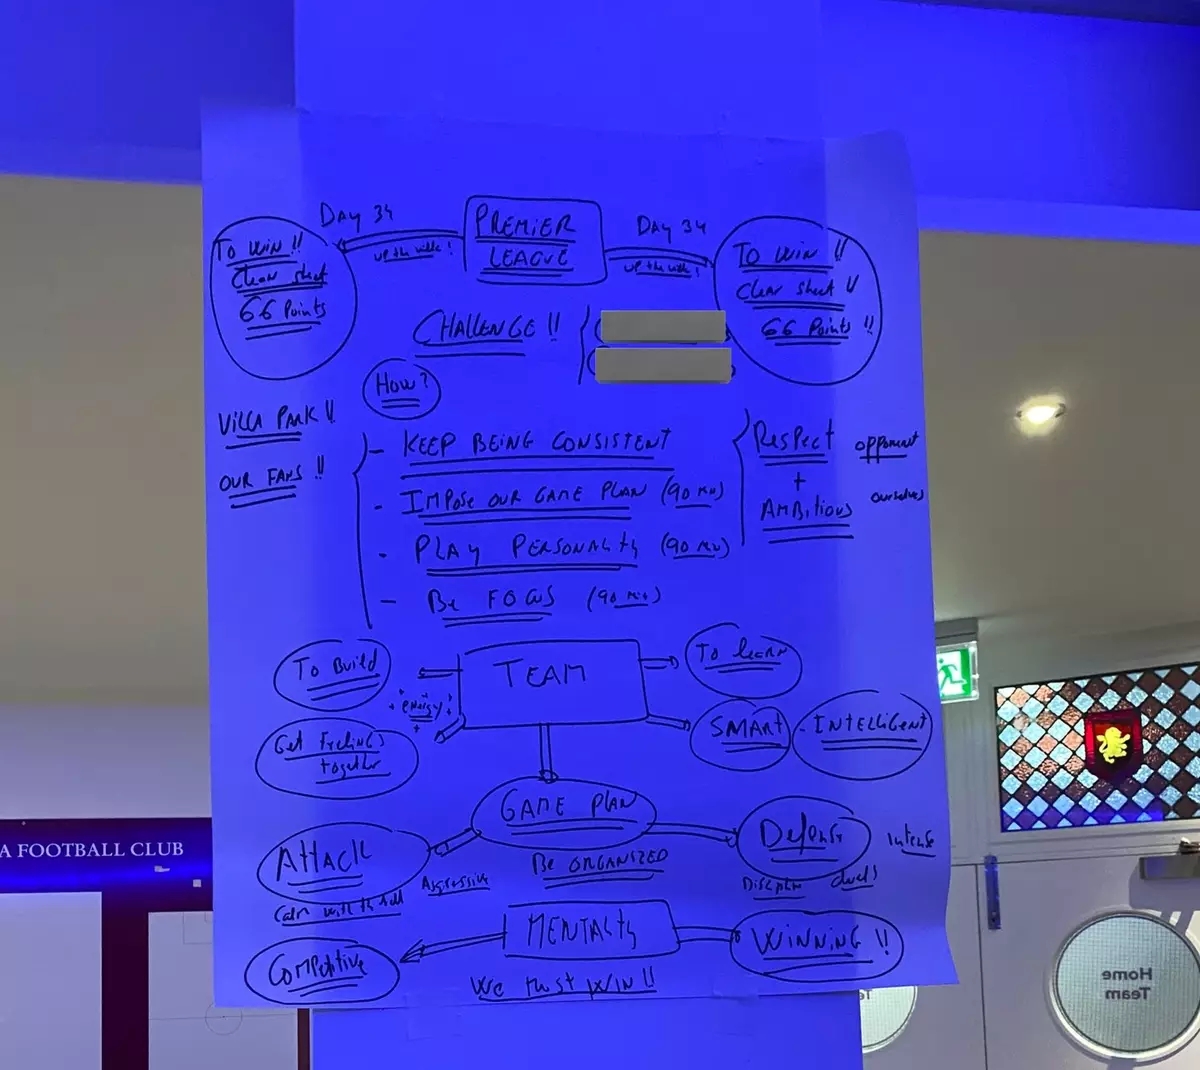 PREMIER
LEAGUE
DAY 34
UP the villa!
DAY 34
UP the villa!
TO WIN !!
Clean sheet
66 Points
TO WIN !!
Clean sheet !!
66 Points !!
CHALLENGE !!
How?
VILLA PARK !!
OUR FANS !!
- KEEP BEING CONSISTENT
- IMPOSE OUR GAME PLAN (90 MIN)
- PLAY PERSONALITY (90 MIN)
- BE FOCUS (90 MIN)
Respect opponent
+
AMBITIOUS ourselves
TEAM
To Build
energy
Get Feelings
together
To learn
SMART - INTELLIGENT
GAME PLAN
Be ORGANIZED
ATTACK
Aggressive
Calm with the ball
Defense intense
duels
MENTALITY
Competitive
WINNING !!
We must WIN !!
A FOOTBALL CLUB
Home
Team